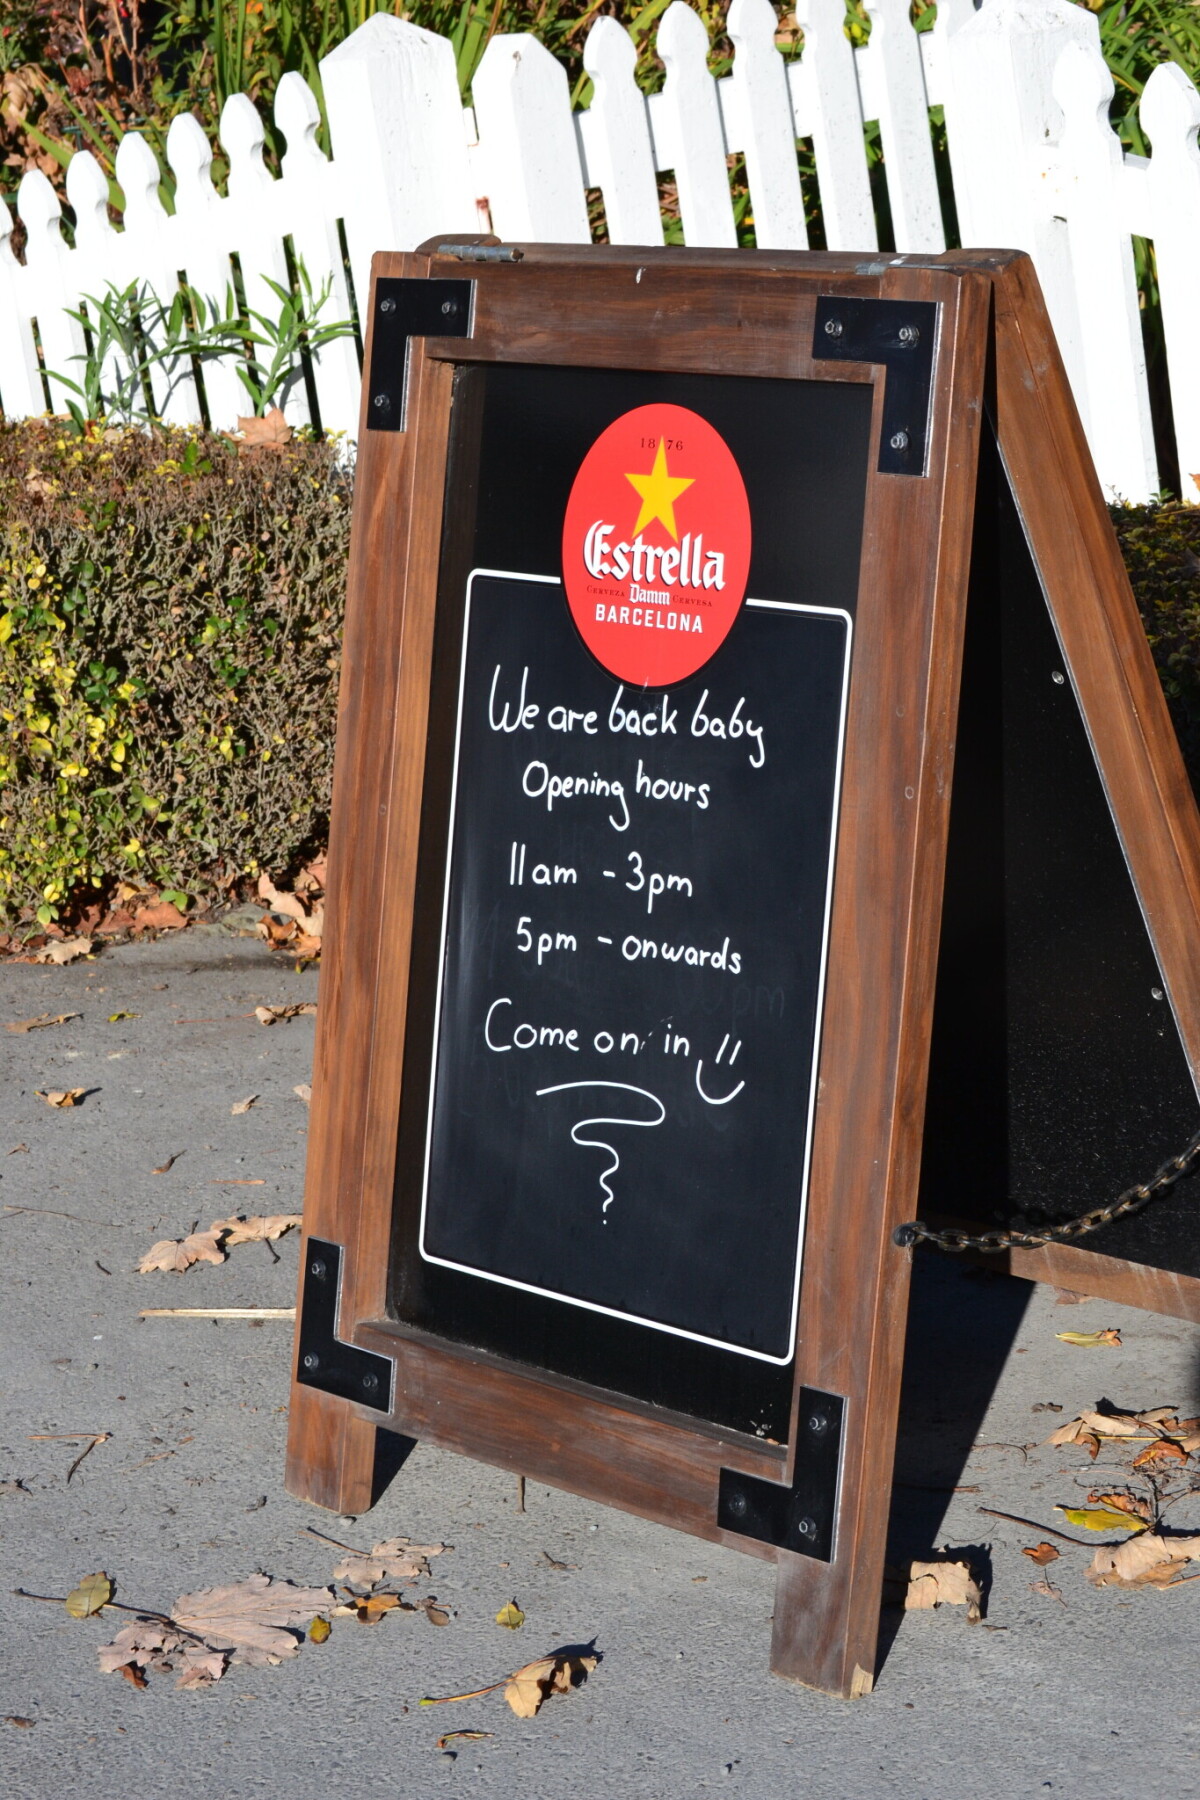 1876
Estrella
CERVEZA Damm CERVESA
BARCELONA
We are back baby
Opening hours
11am - 3pm
5pm - onwards
Come on in !!